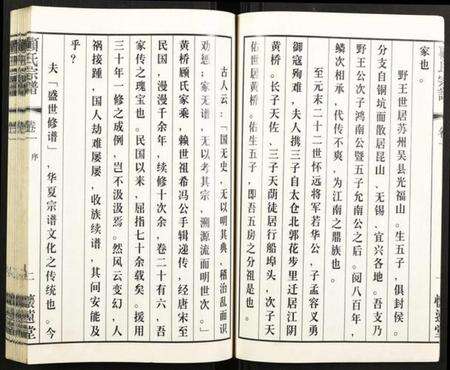 家也。
野王世居苏州吴县光福山。生五子，俱封侯。
分支自铜坑而散居昆山、无锡、宜兴各地。吾支乃
野王公次子鸿南公暨五子允南公之后。阅八百年，
鳞次相承，代传不爽，为江南之鼎族也。
至元末二十二世怀远将军若华公，子孟容又勇
御寇殉难，夫人携三子自太仓北郭花步里迁居江阴
黄桥。长子天佐、三子天荫徒居行船埠头，次子天
佑居黄桥。佑生五子，即吾五房之分祖是也。
古人云：「国无史，无以明其典，稽治乱而识
劝惩；家无谱，无以考其宗，溯源流而明世次。」
黄桥顾氏家乘，赖世祖希冯公手辑递传，经唐宋至
民国，漫漫千余年，续修十次余，卷二十有六，吾
家传之瑰宝也。民国以来，屈指七十余载矣。援用
三十年一修之成例，岂不汲汲焉。然风云变幻，人
祸接踵，国人劫难屡屡，收族续谱，其间安能及
乎？
夫「盛世修谱」，华夏宗谱文化之传统也。今
顾氏宗谱
卷一
序